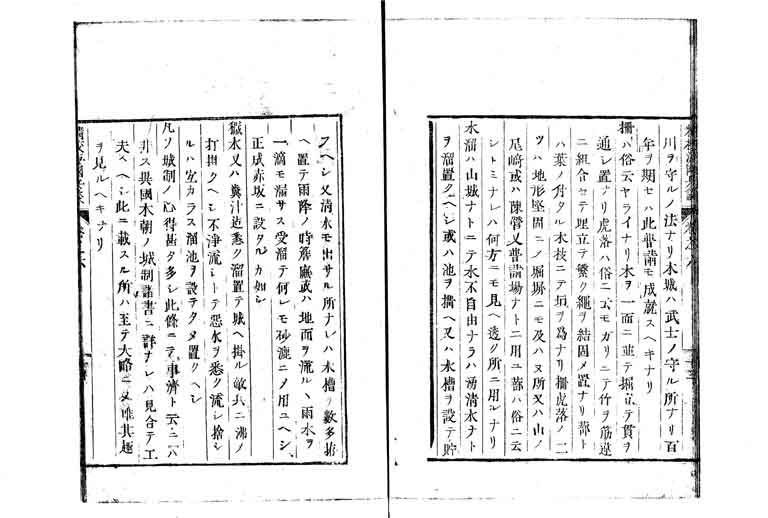 川ヲ守ルノ法ナリ本城ハ武士ノ守ル所ナリ百
年ヲ期セハ此普請モ成就スヘキナリ
柵ハ俗云ヤライナリ木ヲ一面ニ並テ掘立テ貫ヲ
通シ置ナリ虎落ハ俗ニ云モガリニテ竹ヲ筋違
ニ組合セテ埋立テ繁ク繩ヲ結固メ置ナリ蔀ト
ハ葉ノ付タル木枝ニテ垣ヲ爲ナリ柵虎落ノ二
ツハ地形堅固ニノ堀塀ニモ及ハヌ所又ハ山ノ
尾﨑或ハ陳營又普請場ナトニ用ユ蔀ハ俗ニ云
シトミナレハ何方ニモ見ヘ透ク所ニ用ルナリ
水溜ハ山城ナトニテ水不自由ナラハ湧清水ナト
ヲ溜置クヘシ或ハ池ヲ搆ヘ又ハ木槽ヲ設テ貯
フヘシ又清水モ出サル所ナレハ木槽ヲ數多拵
ヘ置テ雨降ノ時觧廰或ハ地面ヲ流ルヽ雨水ヲ
一滴モ漏サス受溜テ何レモ砂漉ニメ用ユヘシ
正成赤坂ニ設タルカ如シ
獄水又ハ糞汁迠悉ク溜置テ城ヘ掛ル敵兵ニ沸ノ
打掛クヘシ不浄流シトテ惡水ヲ悉ク流シ捨シ
ルハ宜カラス溜池ヲ設テタメ置クヘシ
凡ソ城制ノ心得甚タ多シ此條ニテ事濟ト云ニハ
非ス異國本朝ノ城制諸書ニ詳ナレハ見合テ工
夫スヘシ此ニ載スル所ハ至テ大略ニノ唯其趣
ヲ見ルヘキナリ